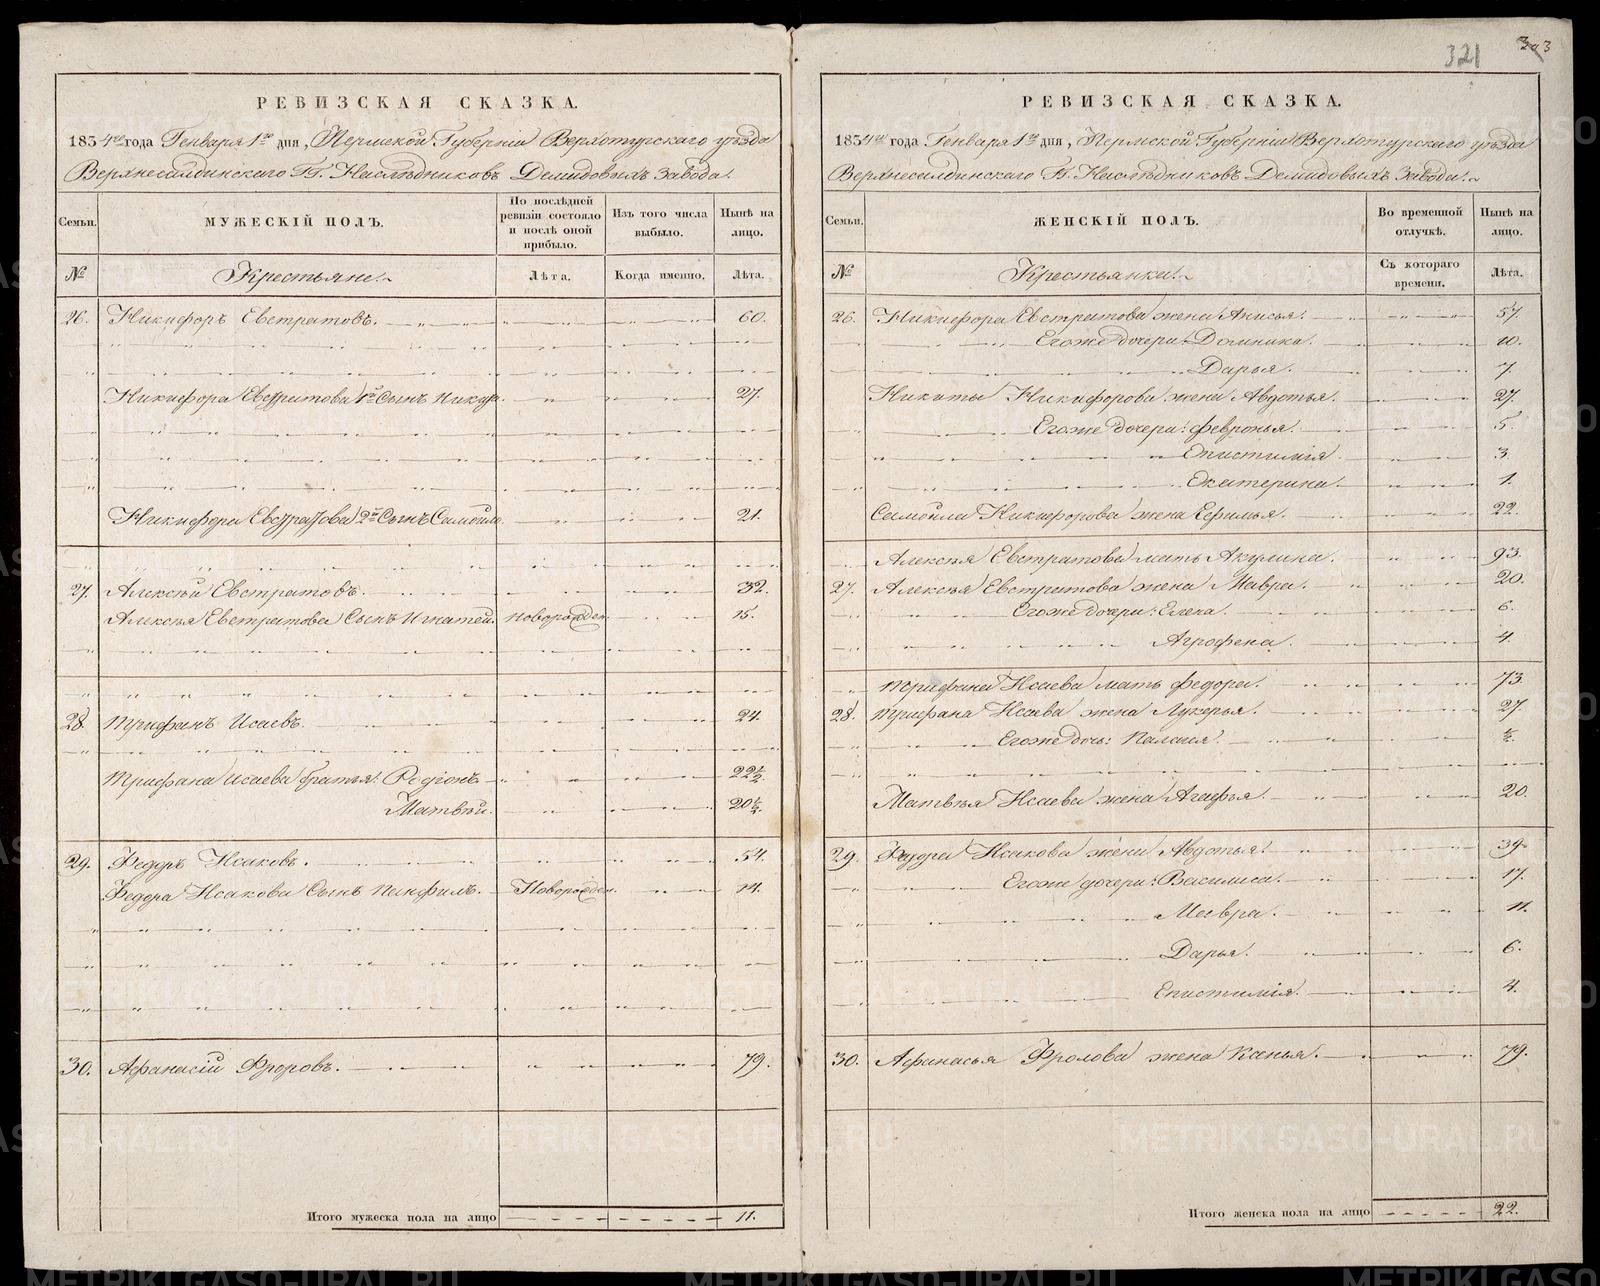 321
РЕВИЗСКАЯ СКАЗКА.
1834го года Генваря 1го дня, Пермской Губерніи Верхотурскаго уѣзда
Верхнесалдинскаго Гг. Наслѣдниковъ Демидовыхъ Завода.
Семьи. МУЖЕСКІЙ ПОЛЪ. По послѣдней ревизіи состояло и послѣ оной прибыло. Изъ того числа выбыло. Нынѣ на лицо.
№ Крестьяне. Лѣта. Когда именно. Лѣта.
26. Никифоръ Евстратовъ. 60.
Никифора Евстратова 1й Сынъ Никита. 27.
Никифора Евстратова 2й Сынъ Самойло 21.
27. Алексѣй Евстратовъ. 32.
Алексѣя Евстратова Сынъ Игнатей. новорожден. 15.
28. Трифанъ Исаевъ. 24.
Трифана Исаева братья: Родіонъ 22½.
Матвѣй. 20½.
29. Федоръ Исаковъ. 54.
Федора Исакова Сынъ Панфилъ. Новорожден. 14.
30. Афанасій Фроровъ. 79.
Итого мужеска пола на лицо 11.
РЕВИЗСКАЯ СКАЗКА.
1834го года Генваря 1го дня, Пермской Губерніи Верхотурскаго уѣзда
Верхнесалдинскаго Гг. Наслѣдниковъ Демидовыхъ Завода.
Семьи. ЖЕНСКІЙ ПОЛЪ. Во временной отлучкѣ. Нынѣ на лицо.
№ Крестьянки. Съ котораго времени. Лѣта.
26. Никифора Евстратова жена Анисья. 57.
Его же дочери: Домника. 10.
Дарья. 7.
Никиты Никифорова жена Авдотья. 27.
Его же дочери: Февронья. 5.
Епистимія. 3.
Екатерина. 1.
Самойла Никифорова жена Ефимья. 22.
Алексѣя Евстратова мать Акулина. 93.
27. Алексѣя Евстратова жена Мавра. 20.
Его же дочери: Елена. 6.
Агрофена. 4.
Трифана Исаева мать Федора. 73.
28. Трифана Исаева жена Лукерья. 27.
Его же дочь: Палагея.
Матвѣя Исаева жена Агафья. 20.
29. Федора Исакова жена Авдотья. 39.
Его же дочери: Василиса. 17.
Мавра. 11.
Дарья. 6.
Епистимія. 4.
30. Афанасья Фролова жена Ксенья. 79.
Итого женска пола на лицо 22.
METRIKI.GASO-URAL.RU